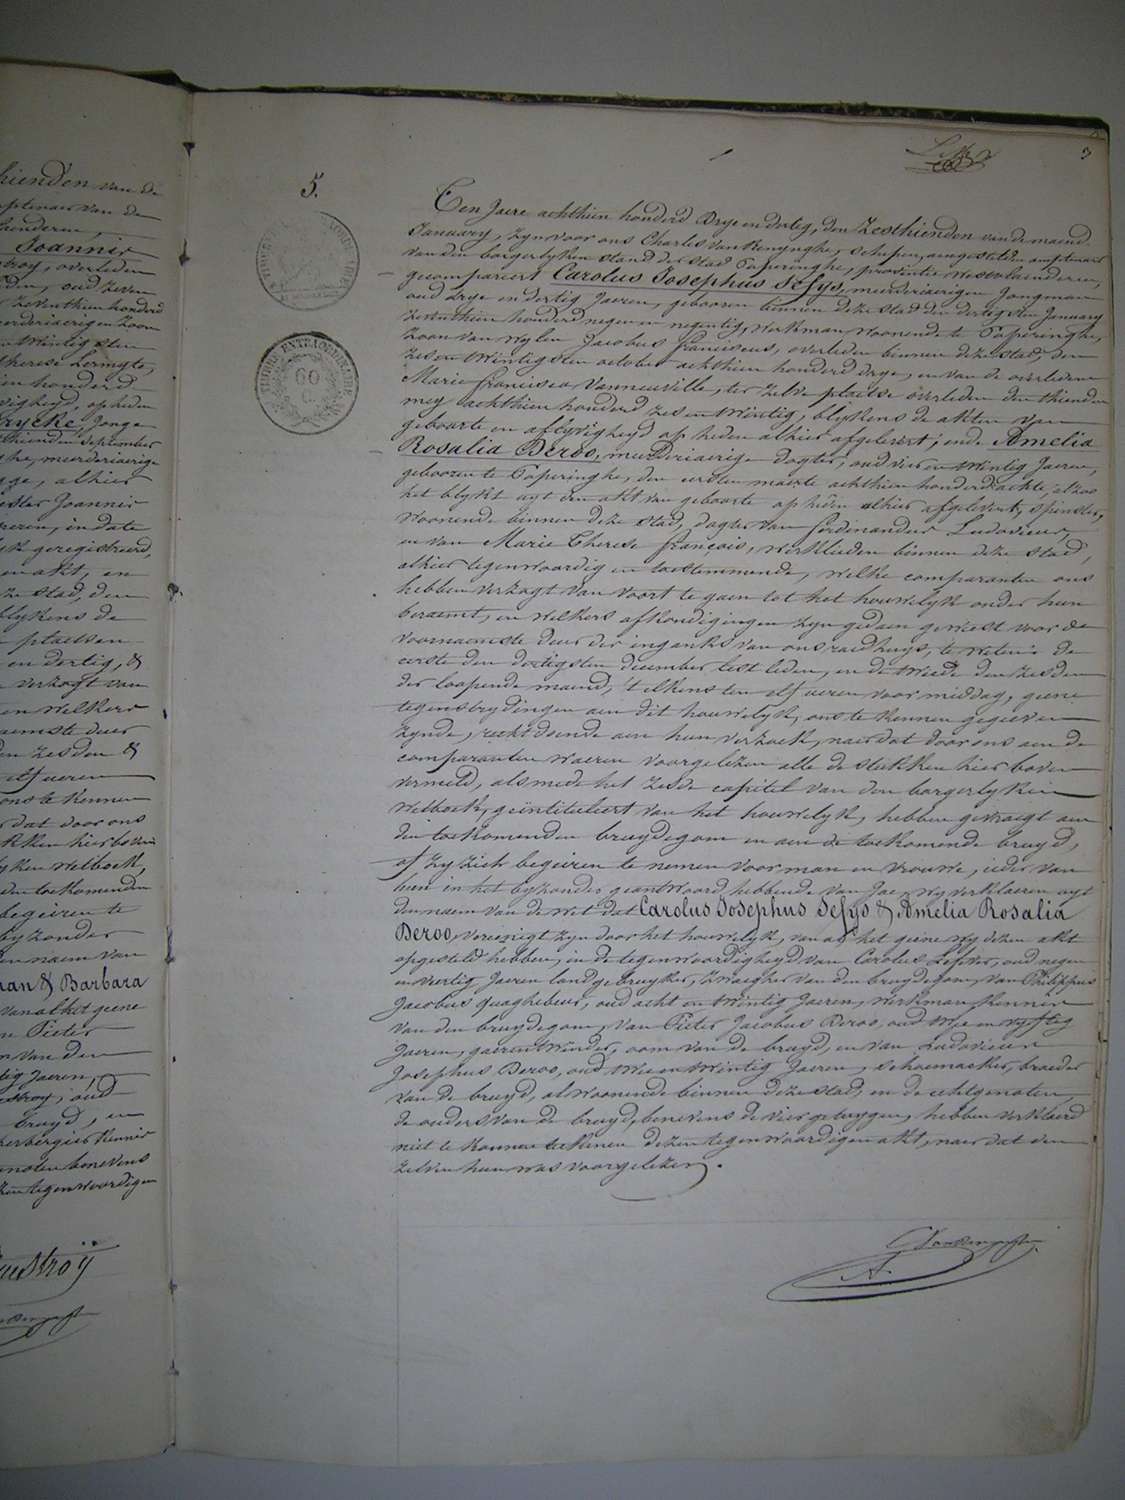 hienden van de
Joannis
troy, overleden
den, oud zeven
zeventhien honderd
meerderjaerigen zoon
therese Lermyte,
op heden
rycke, Jonge
thienden september
meerderiaerige
alhier
Joannis
in date
geregistreerd,
akt, en
ze stad, den
blykens de
plaetsen
en dertig, &
verzogt van
en welkers
deur
den zesden &
elf ueren
ons te kennen
dat door ons
stukken hierboven
ken wetboek,
den toekomenden
begeiren te
byzonder
den naem van
man & Barbara
van alhet geene
Pieter
van den
tig Jaeren,
oud
bruyd, en
herbergier kennis
benevens
tegenwoordigen
5.
3
TIMBRE EXTRAORDINAIRE
60
C.
Een Jaere achthien honderd drye en dertig, den Zesthienden van de maend
January, zyn voor ons Charles Van Renynghe, schepen, aengestelden amptenaer
van den borgerlyken stand der stad Poperinghe, provintie Westvlaenderen,
gecompareert Carolus Josephus Sesys, meerderiaerigen Jongman
oud drye en dertig Jaeren, gebooren binnen deze stad den dertigsten January
zeventhien honderd negen en negentig, werkman woonende te Poperinghe,
zoon van wylen Jacobus franciscus, overleden binnen deze stad den
zes en twintigsten october achthien honderd drye, en van de overledene
Marie francisca Vanneuville, ter zelve plaetse overleden den thienden
mey achthien honderd zes en twintig, blykens de akten van
geboorte en aflyvigheyd op heden alhier afgelevert; ende Amelia
Rosalia Deroo, meerderiaerige dogter, oud vier en twintig Jaeren,
gebooren te Poperinghe, den eersten maerte achthien honderd achte, alzoo
het blykt uyt den akt van geboorte op heden alhier afgelevert, spinster,
woonende binnen deze stad, dogter van ferdinandus Ludovicus,
en van Marie Therese françois, werklieden binnen deze stad,
alhier tegenwoordig en toestemmende, welke comparanten ons
hebben verzogt van voort te gaen tot het houwelyk onder hun
beraemt, en welkers afkondigingen zyn gedaen geweest voor de
voornaemste deur der ingank van ons raedhuys, te weten: de
eerste den dertigsten december lest leden, en de tweede den zesden
der loopende maend, 't elkens ten elf ueren voor middag, geene
tegenstrydingen aen dit houwelyk, ons te kennen gegeeven
zynde, recht doende aen hun verzoek, naer dat door ons aen de
comparanten waeren voorgelezen alle de stukken hier boven
vermeld, alsmede het zesde capitel van den borgerlyken
wetboek, geïntituleert van het houwelyk, hebben gevraegt aen
den toekomenden bruydegom en aen de toekomende bruyd,
of zy zich begeiren te nemen voor man en vrouwe, ieder van
hun in het byzonder geantwoord hebbende van Jae, wy verklaeren uyt
den naem van de wet dat Carolus Josephus Sesys & Amelia Rosalia
Deroo, vereenigt zyn door het houwelyk, van al het geene wy dezen akt
opgesteld hebben, in de tegenwoordigheyd van Carolus Lefever, oud negen
en veertig Jaeren landgebruyker, zwaegher van den bruydegom, van Philippus
Jacobus quaghebeur, oud acht en twintig Jaeren, werkman kennis
van den bruydegom, van Pieter Jacobus Deroo, oud twee en vyftig
Jaeren, gaerentwinder, oom van de bruyd, en van Ludovicus
Josephus Deroo, oud twee en twintig Jaeren, schoemaeker, broeder
van de bruyd, al woonende binnen deze stad, en de echtgenoten,
de ouders van de bruyd, benevens de vier getuygen, hebben verklaerd
niet te konnen teekenen dezen tegenwoordigen akt, naer dat den
zelven hun was voorgelezen.